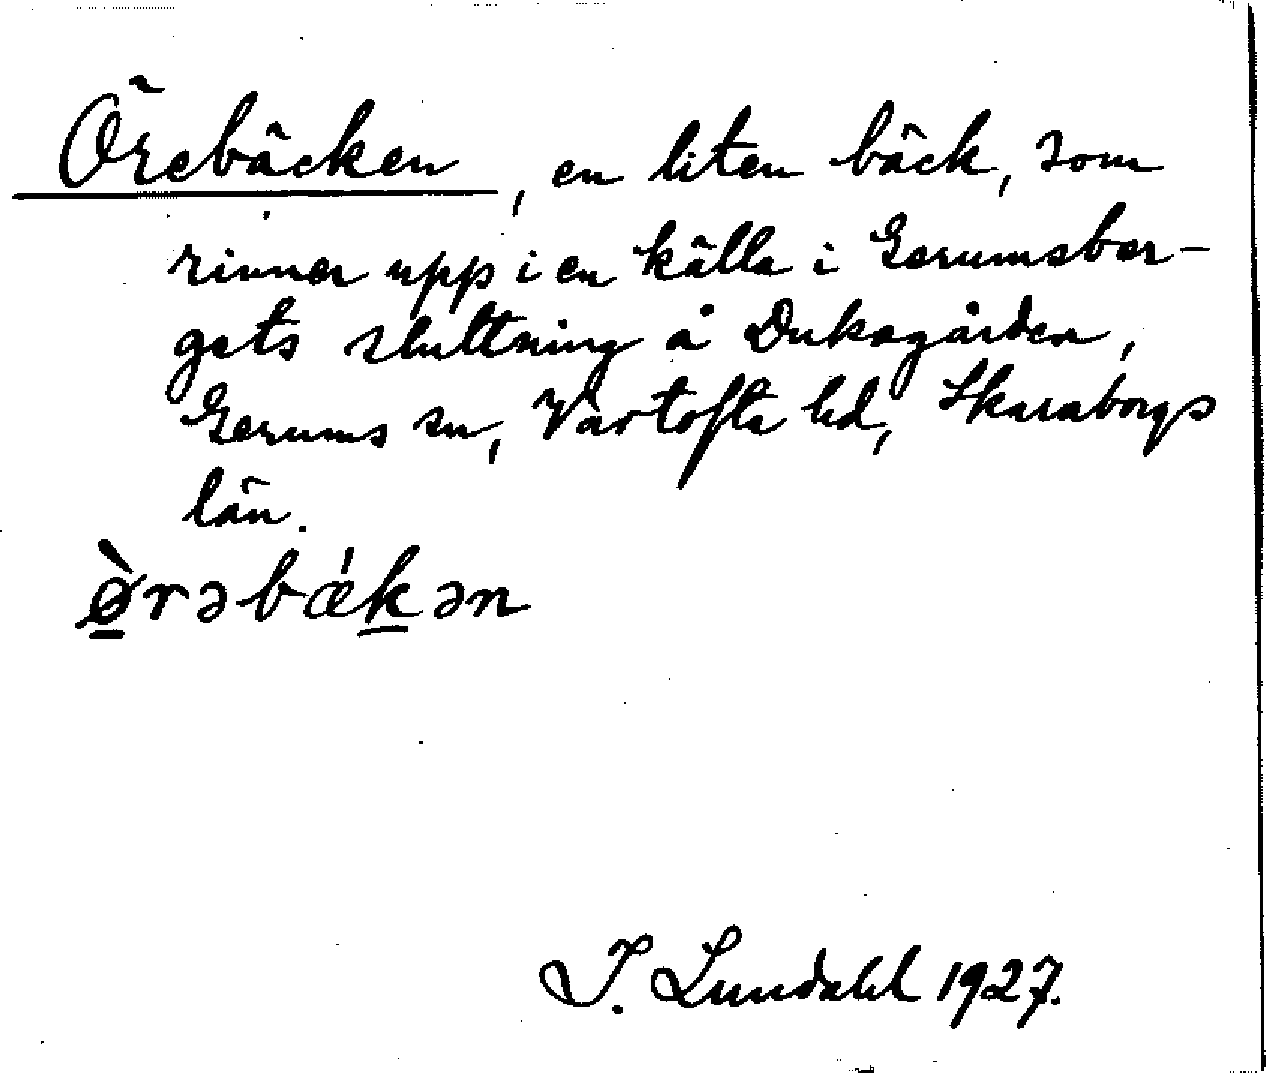 Örebäcken, en liten bäck, som
rinner upp i en källa i Gerumsber-
gets sluttning å Dukagården,
Gerums sn, Vartofta hd, Skaraborgs
län.
ø̱̀rəbǽḵən
I. Lundahl 1927.